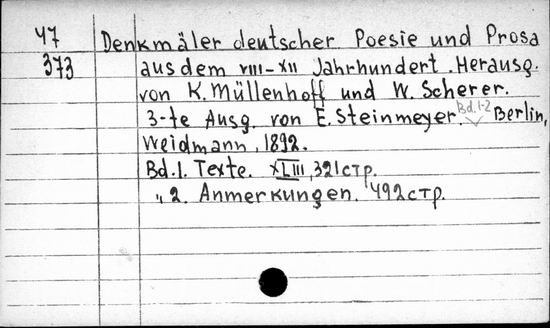 47
373
Denkmäler deutscher Poesie und Prosa
aus dem VIII–XII Jahrhundert. Herausg.
von K. Müllenhoff und W. Scherer.
3-te Ausg. von E. Steinmeyer. Bd. 1-2 Berlin,
Weidmann, 1892.
Bd. 1. Texte. XLIII, 321 стр.
„ 2. Anmerkungen. 492 стр.